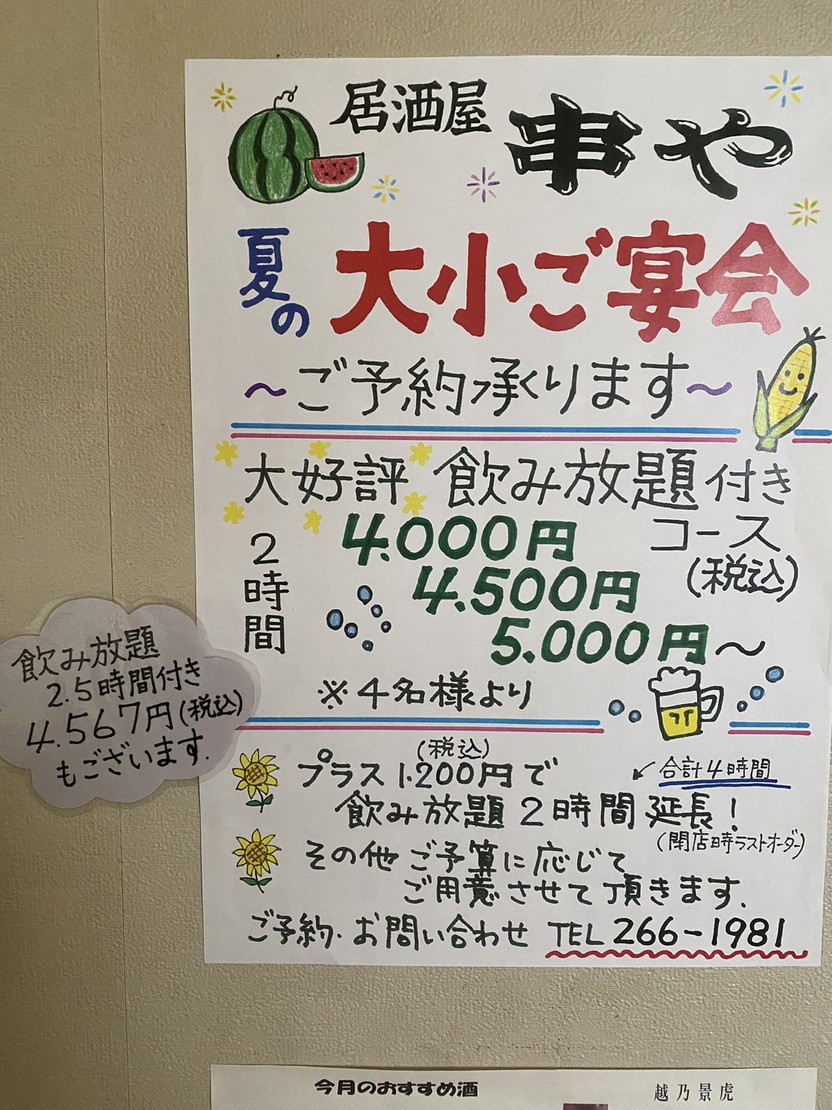 居酒屋 串や
夏の 大小ご宴会
～ご予約承ります～
大好評 飲み放題付き
コース
(税込)
2時間
4.000円
4.500円
5.000円～
※4名様より
飲み放題
2.5時間付き
4.567円(税込)
もございます.
(税込)
プラス1.200円で
合計4時間
飲み放題2時間延長!
(閉店時ラストオーダー)
その他ご予算に応じて
ご用意させて頂きます.
ご予約・お問い合わせ TEL 266-1981
今月のおすすめ酒
越乃景虎